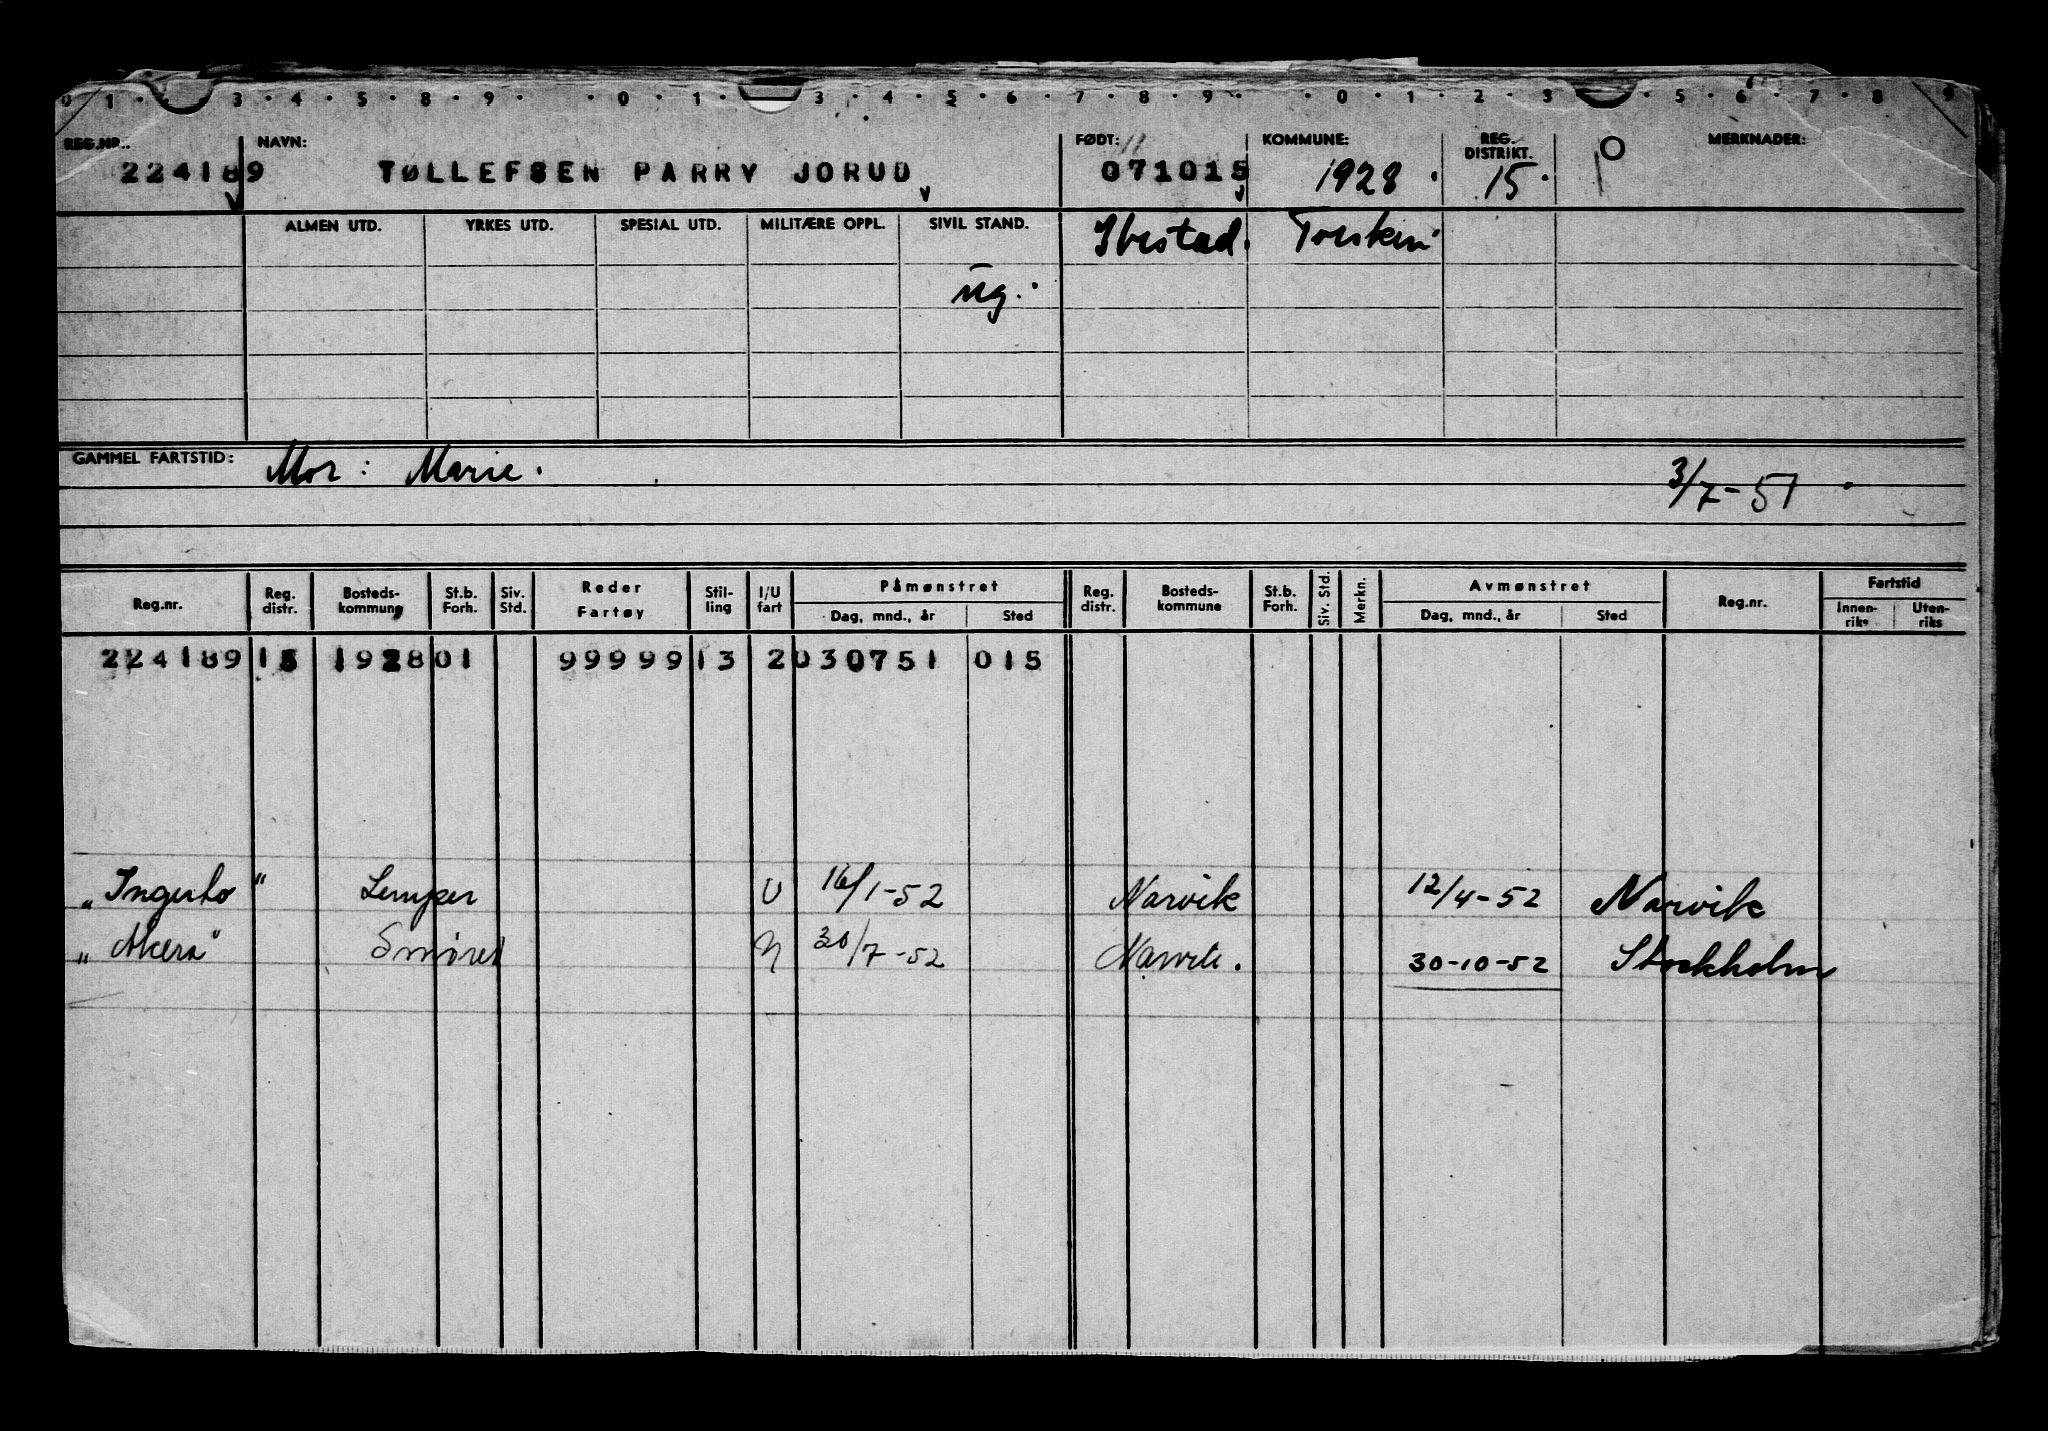 0 1 · 3 · 4 · 5 · 8 · 9 · · 0 · 1 · 3 · 4 · 5 · 6 · 7 · 8 · 9 · · 0 · 1 · 2 · 3 · 5 · 6 · 7 · 8 9
REG.NR.: NAVN: FØDT: 11 KOMMUNE: REG. DISTRIKT. MERKNADER:
224189 TØLLEFSEN PARRY JORUD 071015 1928 15 O
ALMEN UTD. YRKES UTD. SPESIAL UTD. MILITÆRE OPPL. SIVIL STAND. Ibestad. Torsken
ug.
GAMMEL FARTSTID: Mor: Marie. 3/7-51
Reg.nr. Reg. distr. Bosteds-kommune St.b. Forh. Siv. Std. Reder Fartøy Stil-ling I/U fart Påmønstret Reg. distr. Bosteds-kommune St.b. Forh. Siv. Std. Merkn. Avmønstret Reg.nr. Fartstid
Dag, mnd., år Sted Dag, mnd., år Sted Innen-riks Uten-riks
224189 15 1928 01 99999 13 2 030751 015
„Ingerto" Lemper U 16/1-52 Narvik 12/4-52 Narvik
„Akera" Smører N 30/7-52 Narvik. 30-10-52 Stockholm